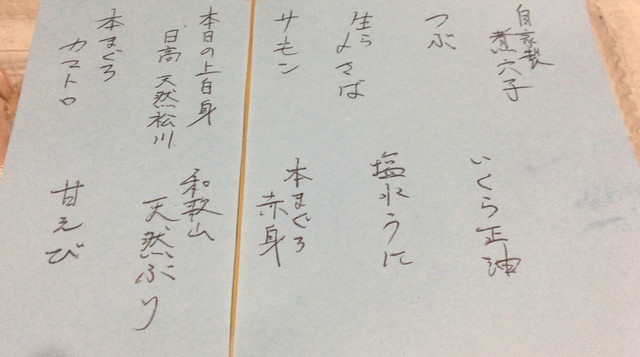 自家製
煮穴子
つぶ
生〆さば
サモン
本日の上白身
日高 天然松川
本まぐろ
カマトロ
いくら正油
塩水うに
本まぐろ
赤身
和歌山
天然ぶり
甘えび